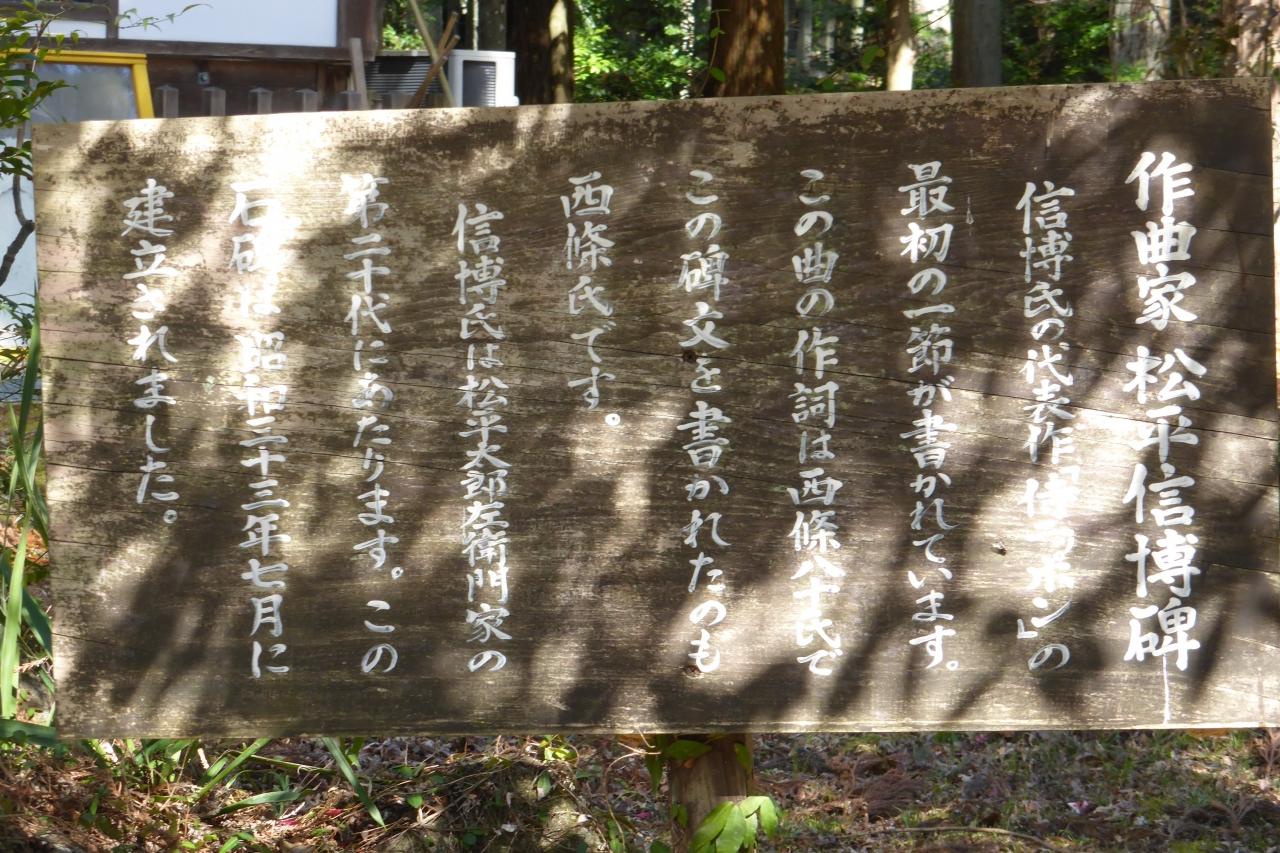 作曲家 松平信博碑
信博氏の代表作「侍ニッポン」の
最初の一節が書かれています。
この曲の作詞は西條八十氏で
この碑文を書かれたのも
西條氏です。
信博氏は松平太郎左衛門家の
第二十代にあたります。この
石碑は昭和三十三年七月に
建立されました。